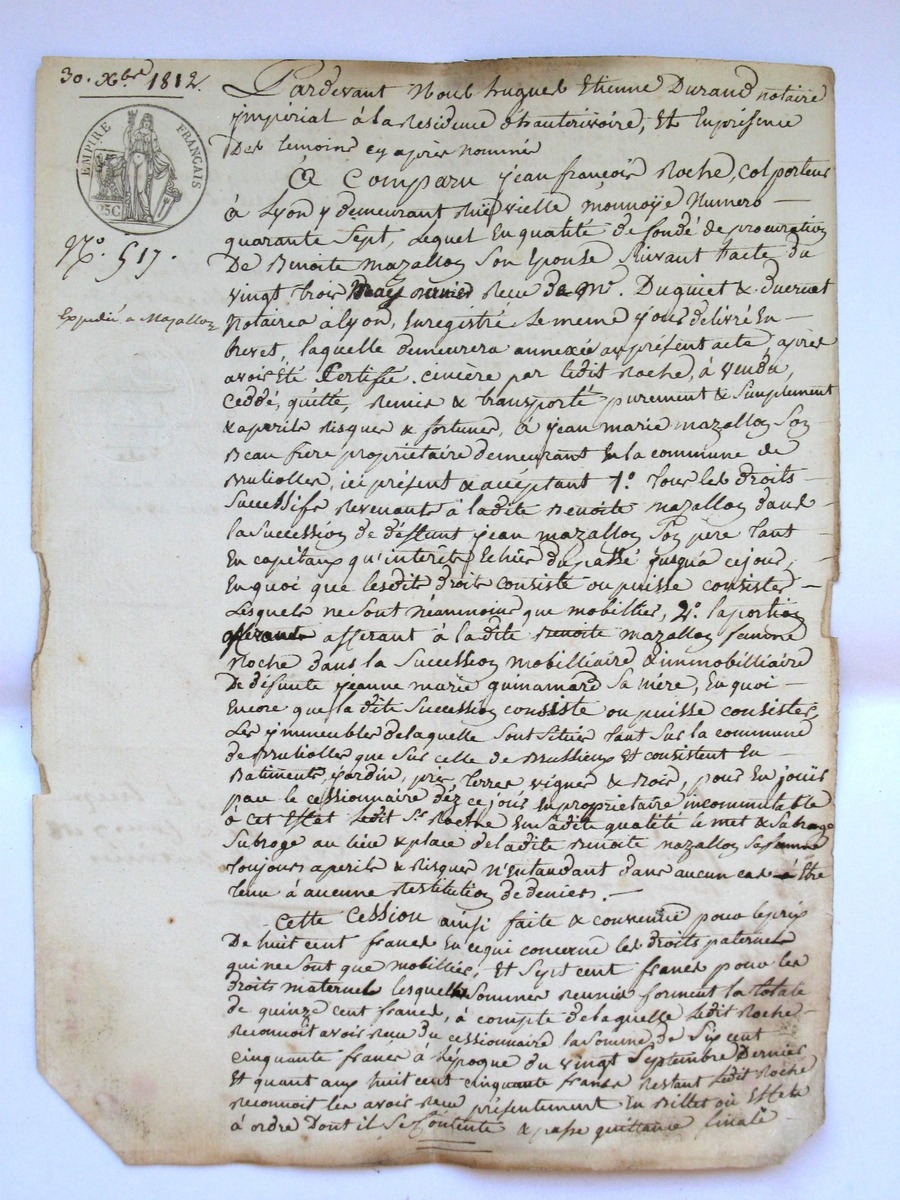 30. Xbre 1812.
EMPIRE FRANÇAIS
25C
No. 517.
Expédié a Mazallon
Pardevant Nous hugues Etienne Durand notaire
ymperial à la Residence d'hauterivoire, Et En présence
Des temoins cy après nommés
A Comparu jean françois Roche, colporteur
à Lyon y demeurant Rue vielle monnoÿe Numero
quarante Sept, Lequel En qualité de fondé de procuration
De Benoite Mazallon Son Epouse Suivant l'acte du
vingt trois reçu de Me. Duguiet & ducruet
Notaires à lyon, Enregistré Le meme jour delivré En
brevet, laquelle demeurera annexée au présent acte, après
avoir Été Certifié cincère par ledit Roche, à vendu,
Ceddé, quitté, Remis & transporté purement & Simplement
& a perils risques & fortunes, à jean marie mazallon Son
Beau frere propriétaire demeurant En la commune de
Brulioles, ici présent & acceptant 1o. Tous les droits
Successifs Revenants à ladite Benoite Mazallon dans
la Succession de deffunt jean mazallon Son père tant
En capitaux qu'interêts Echus du passé jusqu'a ce jour,
En quoi que lesdit droits consiste ou puisse consister
Lesquels ne Sont Néammoins que mobilliers, 2o. la portion
afferant à ladite Benoite Mazallon femme
Roche dans la Succession mobilliaire & immobilliaire
De défunte jeanne marie guinamard Sa mère, En quoi
Encore que ladite Succession consiste ou puisse consister,
Les ymmeubles de laquelle Sont Situés tant Sur la commune
de Brulioles que Sur celle de Brussieux Et consistent En
Batiments, jardin, près, terres, vignes & Bois, pour En jouïr
par le cessionnaire dèz ce jour En propriétaire incommutable
à cet Effet ledit Sr. Roche En Sadite qualité le met & Subroge
Subroge au lieu & place de ladite Benoite Mazallon Sa femme
Toujours a perils & Risques N'entandant dans aucun cas à Etre
tenu à aucune Restitution de deniers.
Cette Cession ainsi faite & convenue pour le prix
De huit cent francs En ce qui concerne les droits paternels
qui ne Sont que mobilliers, Et Sept cent francs pour les
droits maternels lesquelles Sommes Reunies forment la totale
de quinze cent francs, à compte de laquelle Ledit Roche
Reconnoit avoir Reçu du cessionnaire la Somme de Six cent
cinquante francs à l'époque du vingt Septembre Dernier
Et quant aux huit cent cinquante francs Restant Ledit Roche
Reconnoit les avoir Reçu présentement En Billet ou Effets
à ordre Dont il Se Contente & passe quittance finale